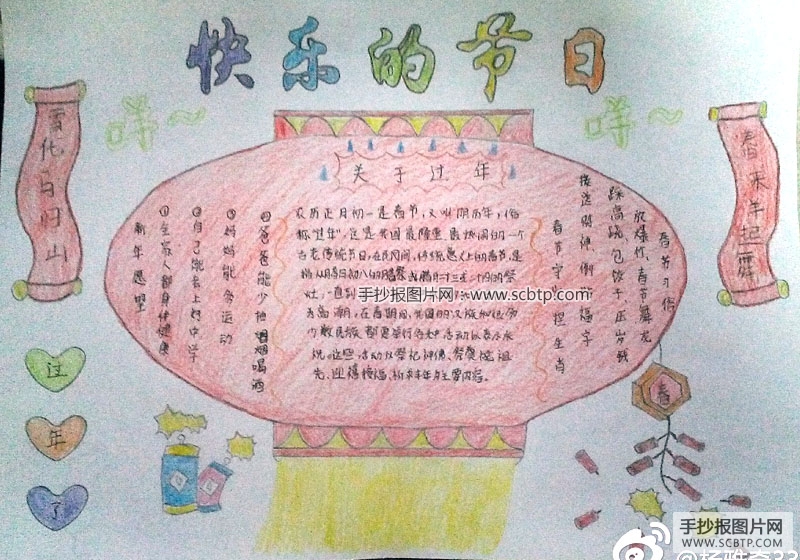 快乐的节日
咩～
咩～
雪化白归山
春来羊起舞
关于过年
农历正月初一是春节，又叫阴历年，俗
称"过年"，这是我国最隆重、最热闹的一个
古老传统节日，在民间，传统意义上的春节，是
指从腊月初八的腊祭或腊月二十三或二十四的祭
灶，一直到
手抄报图片网 www.scbtp.com
为高潮，在春期间，我国的汉族和很多
少数民族都要举行各种活动以表示庆
祝。这些活动以祭祀神佛、祭奠祖
先、迎禧接福、祈求丰年为主要内容。
新年愿望
①全家人都身体健康
②自己能考上好中学
③妈妈能多运动
④爸爸能少抽烟喝酒
春节习俗
放爆竹、春节舞龙
踩高跷、包饺子、压岁钱
接送财神 倒贴福字
春节守 担生肖
春
过
年
了
手抄报图片网
WWW.SCBTP.COM